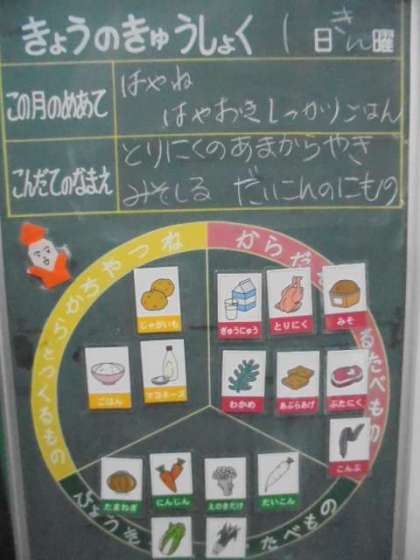 きょうのきゅうしょく 1日 きん曜
この月のめあて
はやね
はやおきしっかりごはん
こんだてのなまえ
とりにくのあまからやき
みそしる だいこんのにもの
ねつやちから
とつくるもの
からだ
るたべもの
じゃがいも
ぎゅうにゅう
とりにく
みそ
ごはん
マヨネーズ
わかめ
あぶらあげ
ぶたにく
こんぶ
たまねぎ
にんじん
えのきだけ
だいこん
びょうき
たべもの